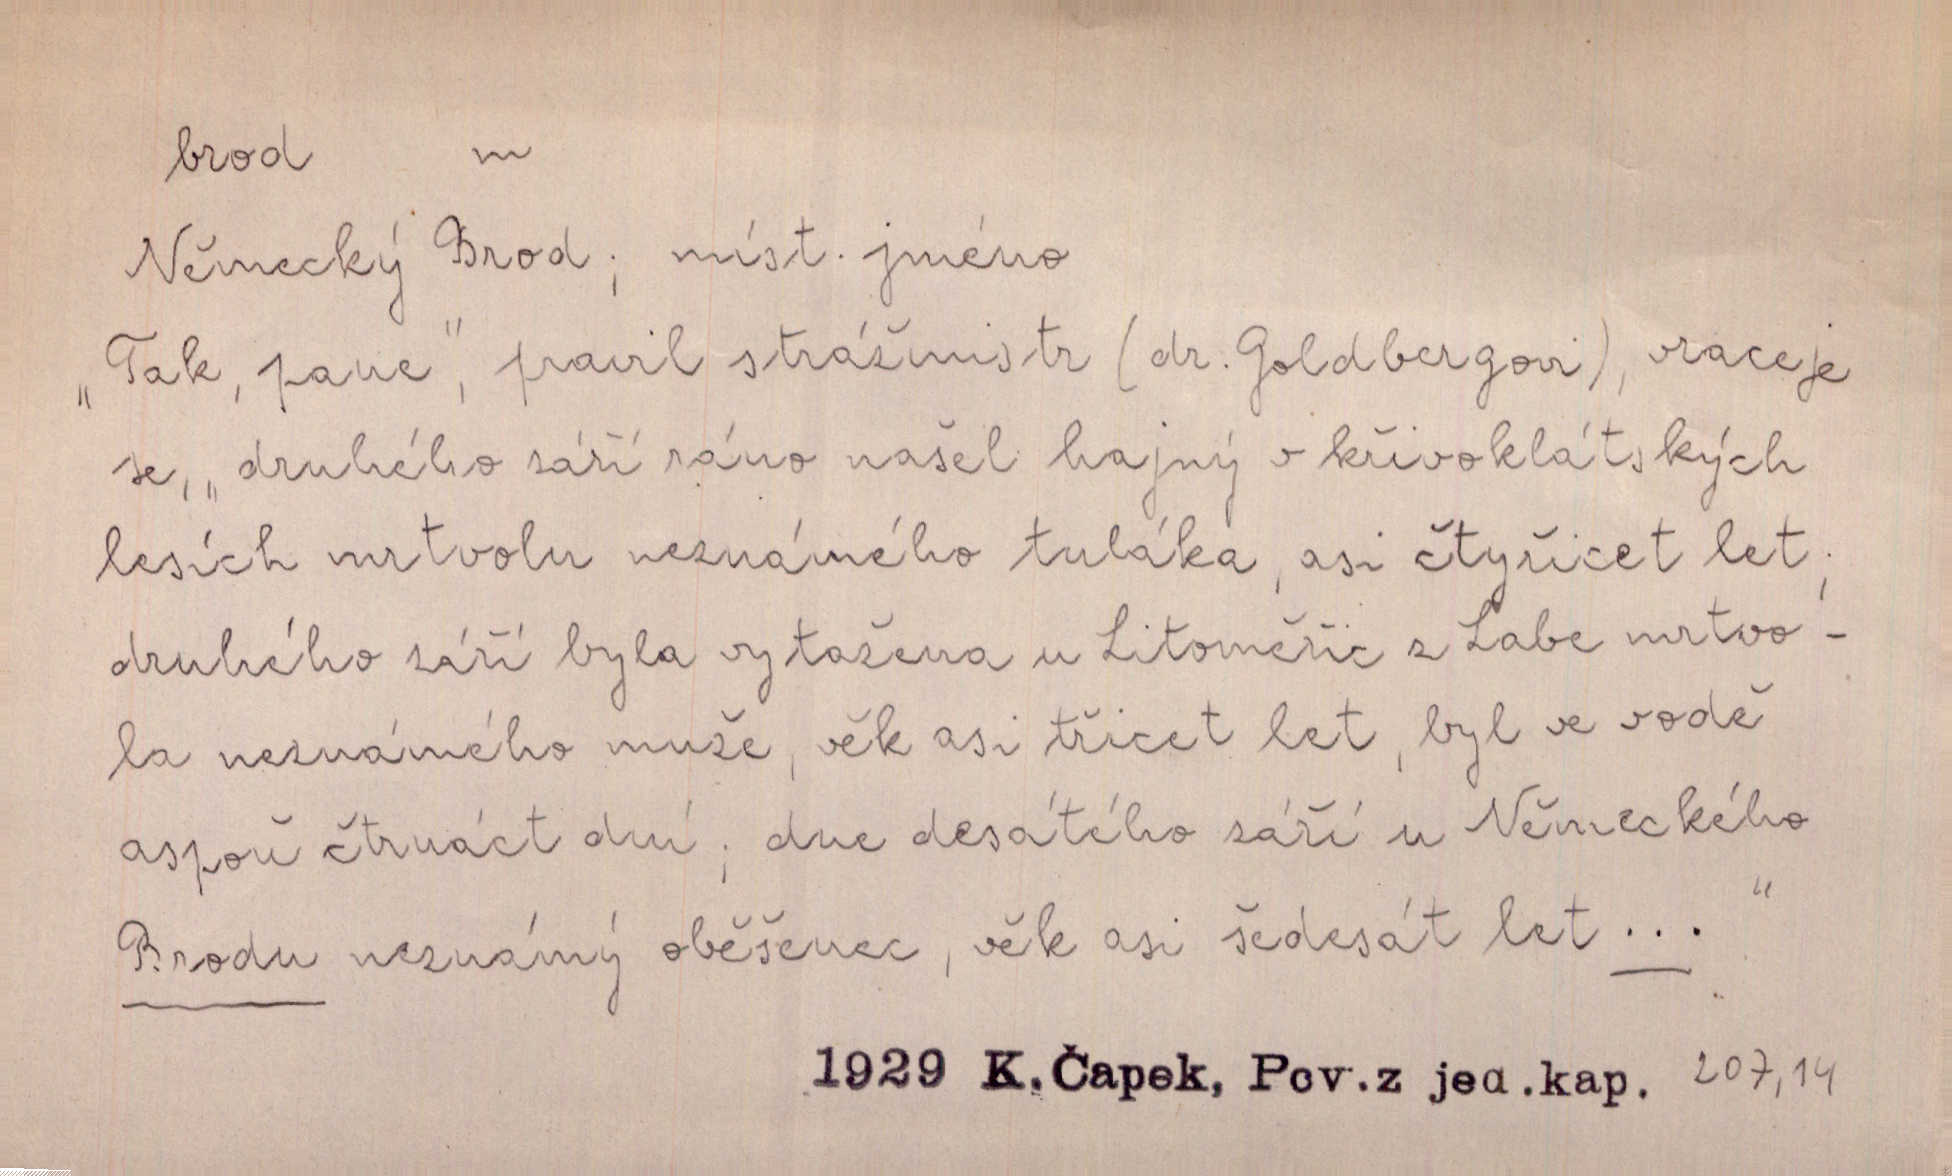 brod m
Německý Brod; míst. jméno
„Tak, pane", pravil strážmistr (dr. Goldbergovi), vraceje
se, „druhého září ráno našel hajný v křivoklátských
lesích mrtvolu neznámého tuláka, asi čtyřicet let;
druhého září byla vytažena u Litoměřic z Labe mrtvo-
la neznámého muže, věk asi třicet let, byl ve vodě
aspoň čtrnáct dní; dne desátého září u Německého
Brodu neznámý oběšenec, věk asi šedesát let ..."
1929 K.Čapek, Pov.z jed.kap. 207,14